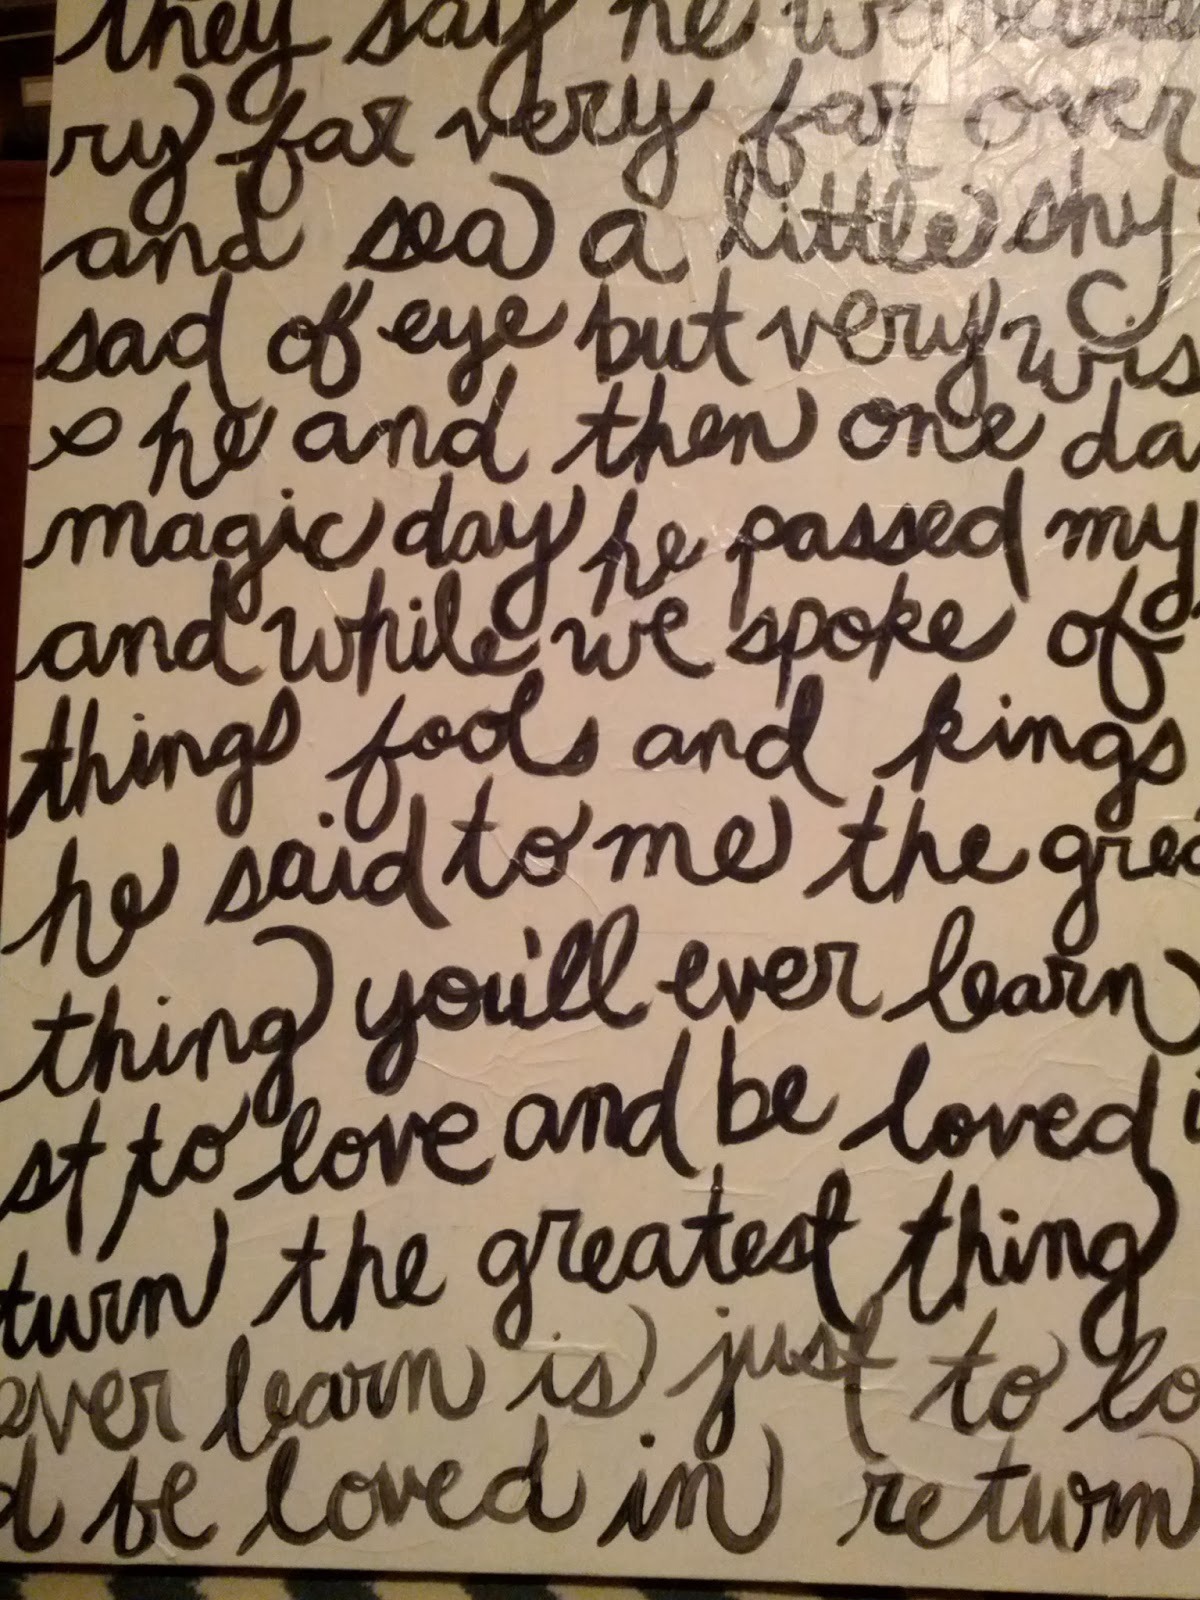 they say he wandered
ry far very far over
and sea a little shy
sad of eye but very wis
e he and then one da
magic day he passed my
and while we spoke of
things fools and kings
he said to me the grea
thing you'll ever learn
st to love and be loved i
turn the greatest thing
ever learn is just to lo
d be loved in return